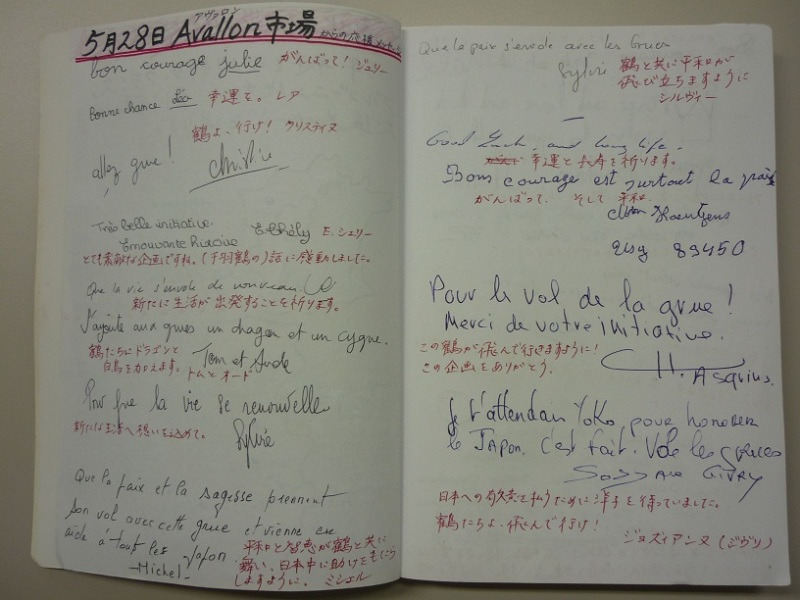 アヴァロン
5月28日 Avallon市場からの応援メッセージ
bon courage julie がんばって! ジュリー
bonne chance Léa 幸運を。レア
鶴よ、行け! クリスティヌ
allez grue!
Christine
Très belle initiative.
Emouvante E. Chély E. シェリー
とても素敵な企画ですね。(千羽鶴の)話に感動しました。
Que la vie s'envole de nouveau.
新たに生活が出発することを祈ります。
J'ajoute aux grues un dragon et un cygne.
鶴たちにドラゴンと
白鳥を加えます。 Tom et Aude
トムとオード
Pour que la vie se renouvelle
新たな生活へ想いを込めて。
Sylvie
Que la paix et la sagesse prennent
son vol avec cette grue et vienne en
aide à tout les Japon
-Michel-
平和と智恵が鶴と共に
舞い、日本中に助けをもたら
しますように。 ミシェル
Que la paix s'envole avec les Grues
Sylvie 鶴と共に平和が
飛び立ちますように
シルヴィー
Good luck, and long life.
幸運と長寿を祈ります。
Bon courage et surtout la paix
がんばって、そして 平和。
89450
Pour le vol de la grue!
Merci de votre initiative.
この鶴が飛んで行きますように!
この企画をありがとう。
H. Asquins.
Je t'attendais YOKO pour honorer
le JAPON. C'est fait. Vole les grues
GIVRY
日本への敬意を払うために洋子を待っていました。
鶴たちよ、飛んで行け!
ジョズィアンヌ(ジヴリ)